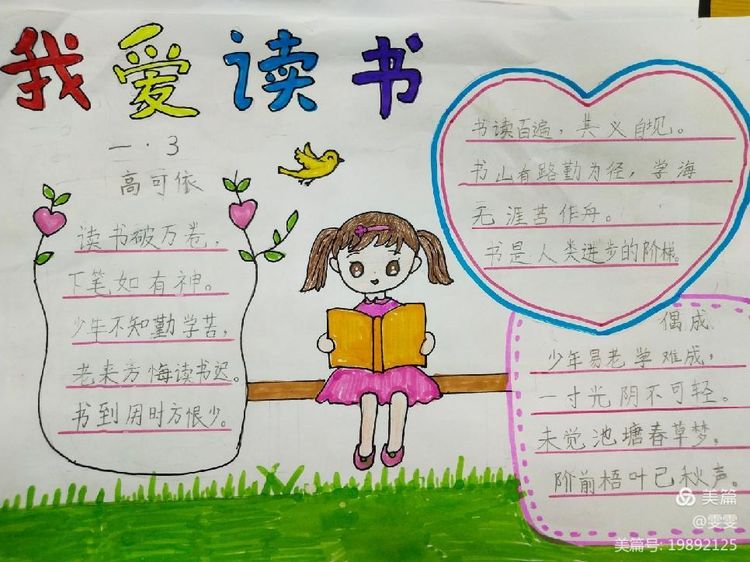 我爱读书
一·3
高可依
读书破万卷,
下笔如有神。
少年不知勤学苦,
老来方悔读书迟。
书到用时方恨少。
书读百遍,其义自见。
书山有路勤为径,学海
无涯苦作舟。
书是人类进步的阶梯。
偶成
少年易老学难成,
一寸光阴不可轻。
未觉池塘春草梦,
阶前梧叶已秋声。
美篇
@雯雯
美篇号: 19892125